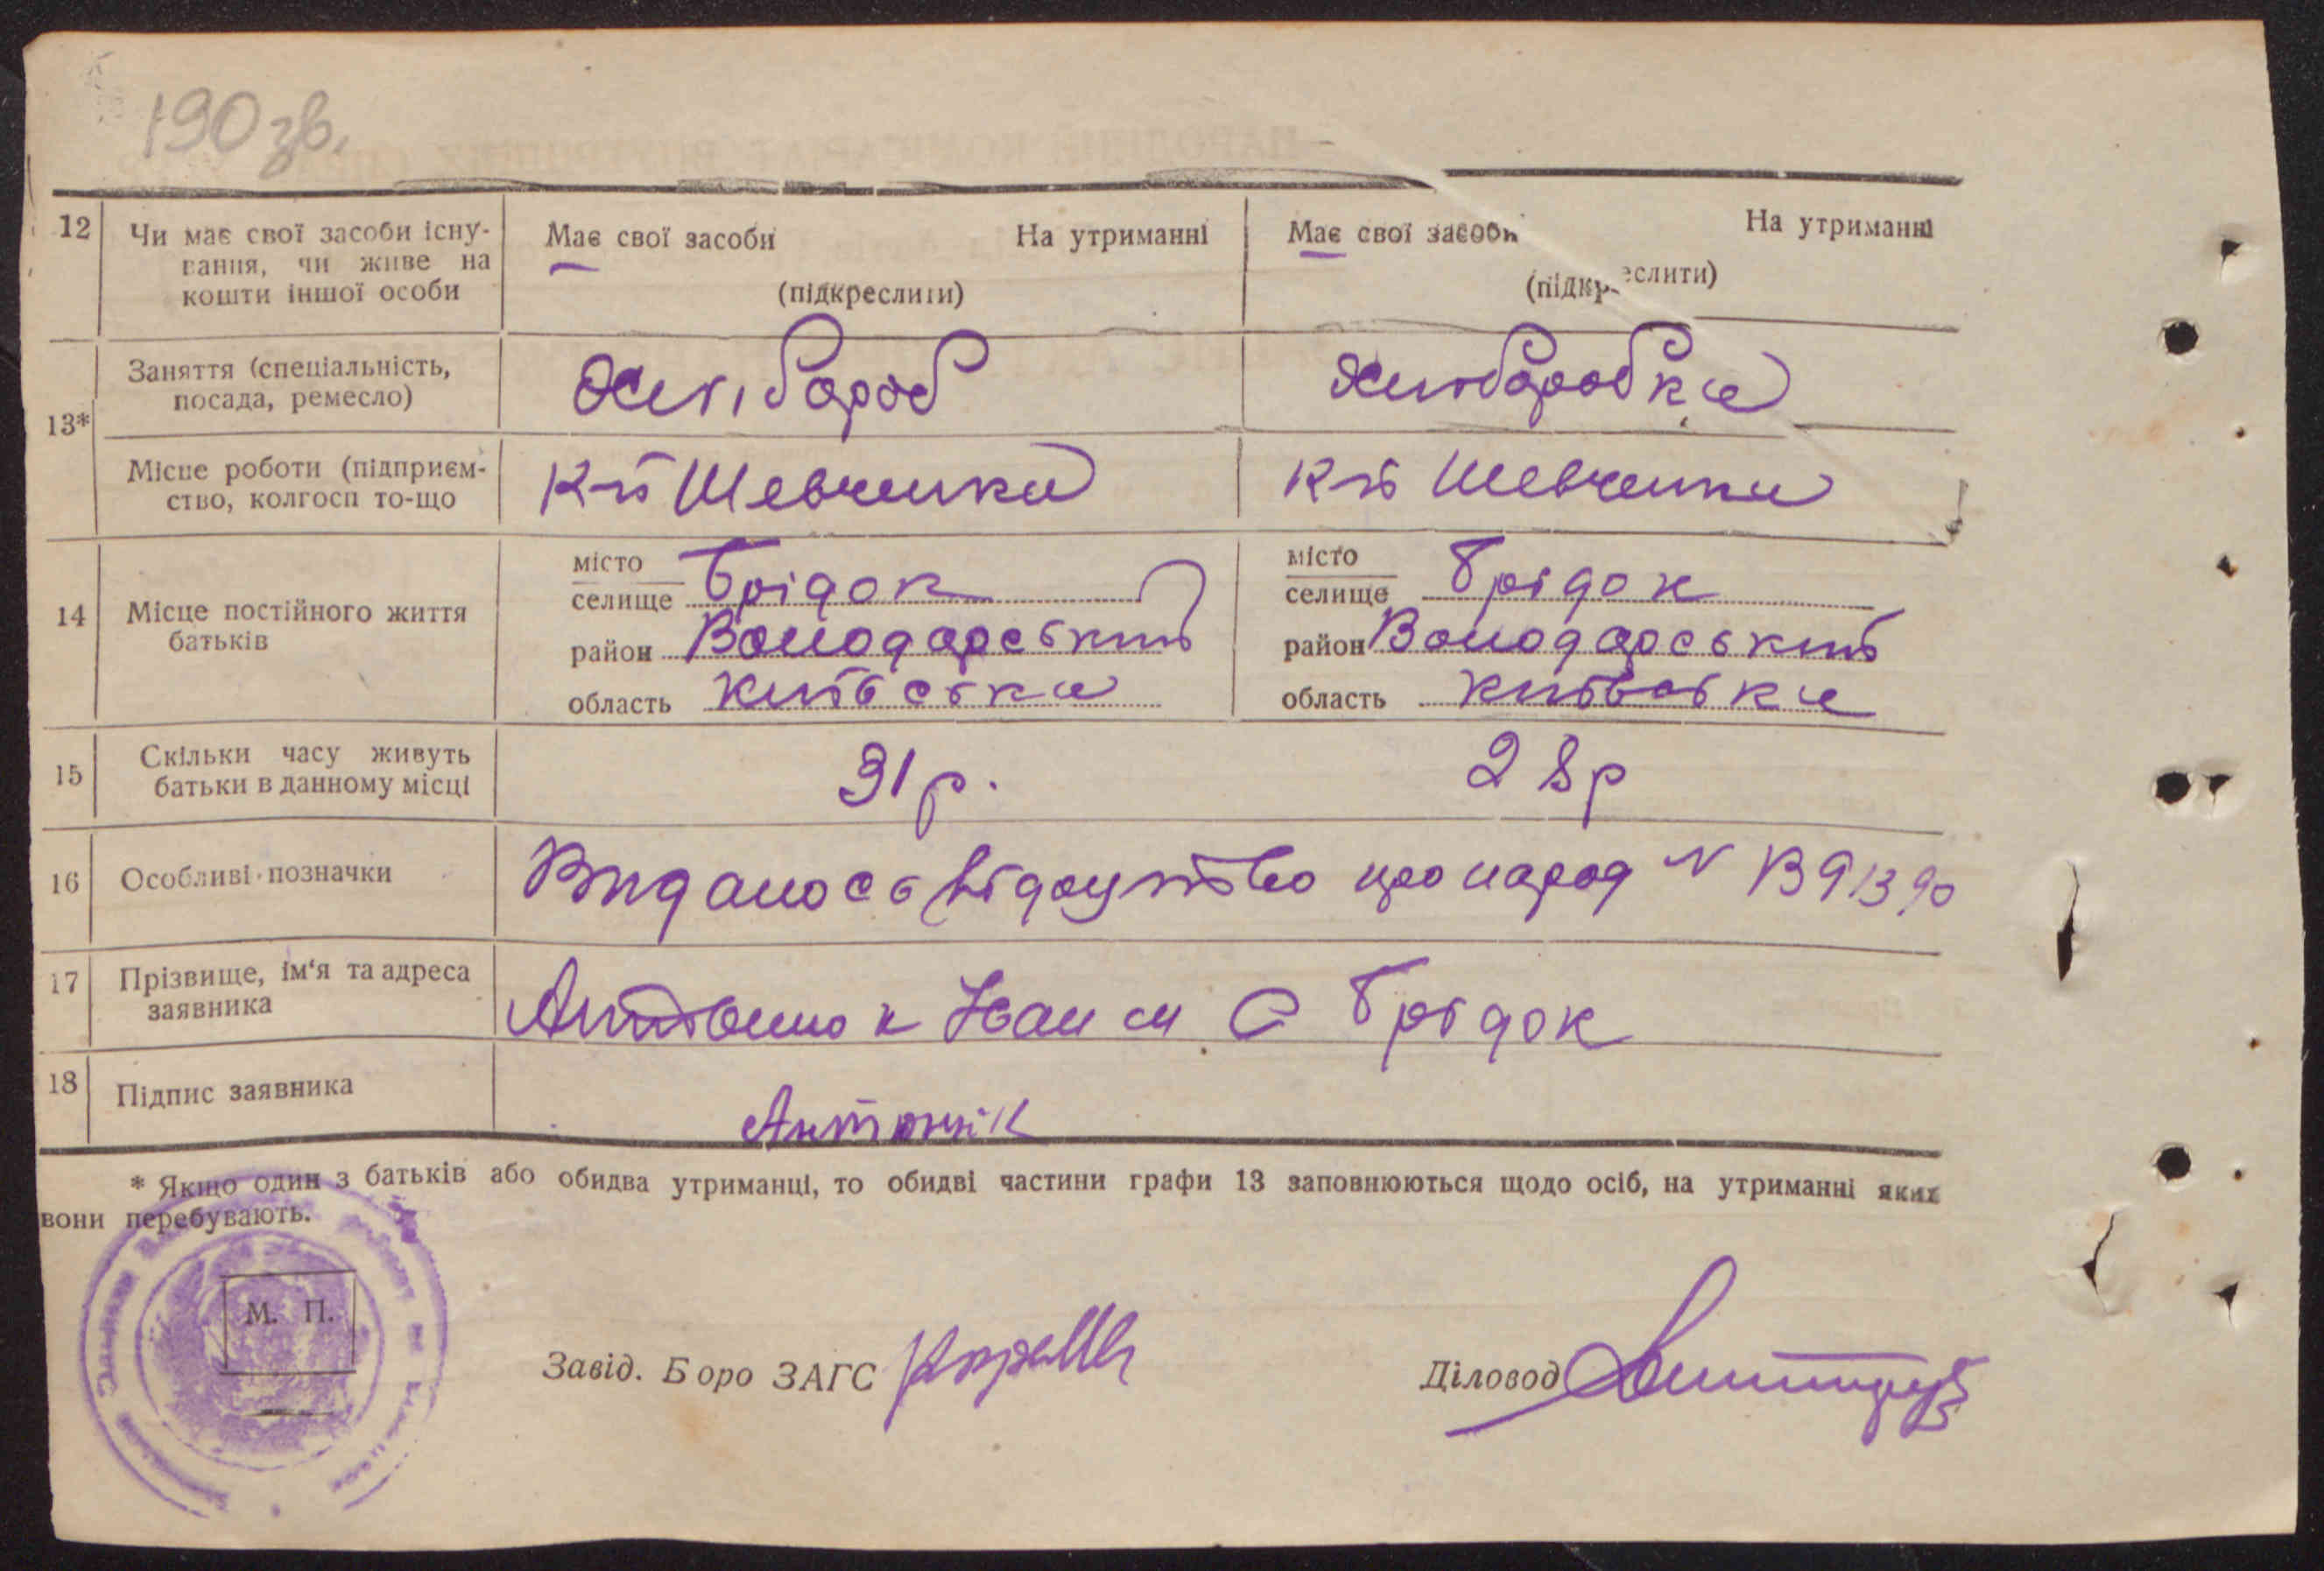 190 зв.
12 Чи має свої засоби існу- Має свої засоби На утриманні Має свої засоби На утриманні
вання, чи живе на
кошти іншої особи (підкреслити) (підкреслити)
13* Заняття (спеціальність, Хлібороб Хліборобка
посада, ремесло)
Місце роботи (підприєм- К-п Шевченка К-п Шевченка
ство, колгосп то-що
14 Місце постійного життя місто місто
батьків селище Брідок селище Брідок
район Володарський район Володарський
область Київська область Київська
15 Скільки часу живуть 31 р. 28 р
батьки в данному місці
16 Особливі позначки Видано свідоцтво про народ N
17 Прізвище, ім'я та адреса Іван С Брідок
заявника
18 Підпис заявника Антонюк
* Якщо один з батьків або обидва утриманці, то обидві частини графи 13 заповнюються щодо осіб, на утриманні яких
вони перебувають.
М. П.
Завід. Бюро ЗАГС Діловод